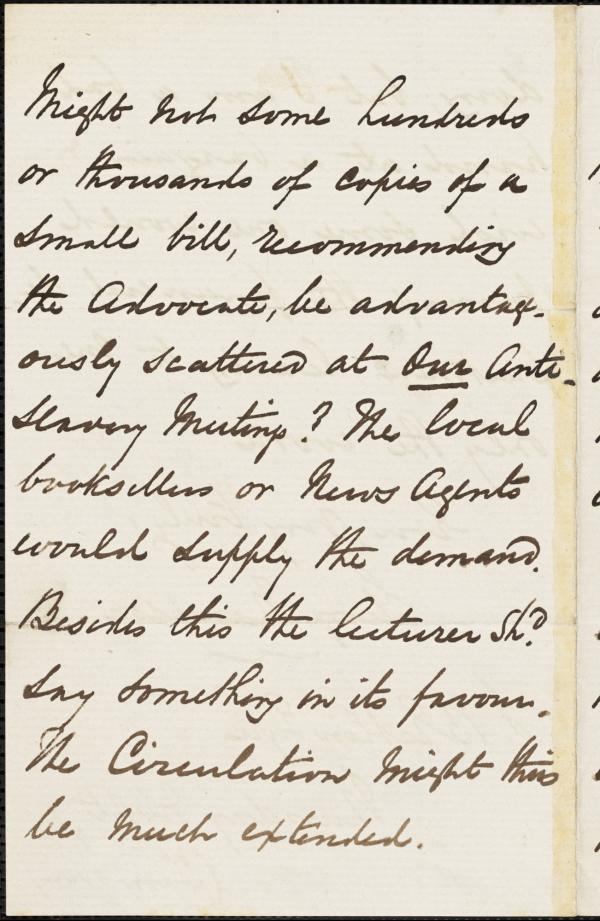 Might not some hundreds
or thousands of copies of a
small bill, recommending
the Advocate, be advantag-
ously scattered at Our Anti-
Slavery Meetings? The local
booksellers or News Agents
would supply the demand.
Besides this the lecturer Shd.
say something in its favour.
The Circulation might thus
be much extended.